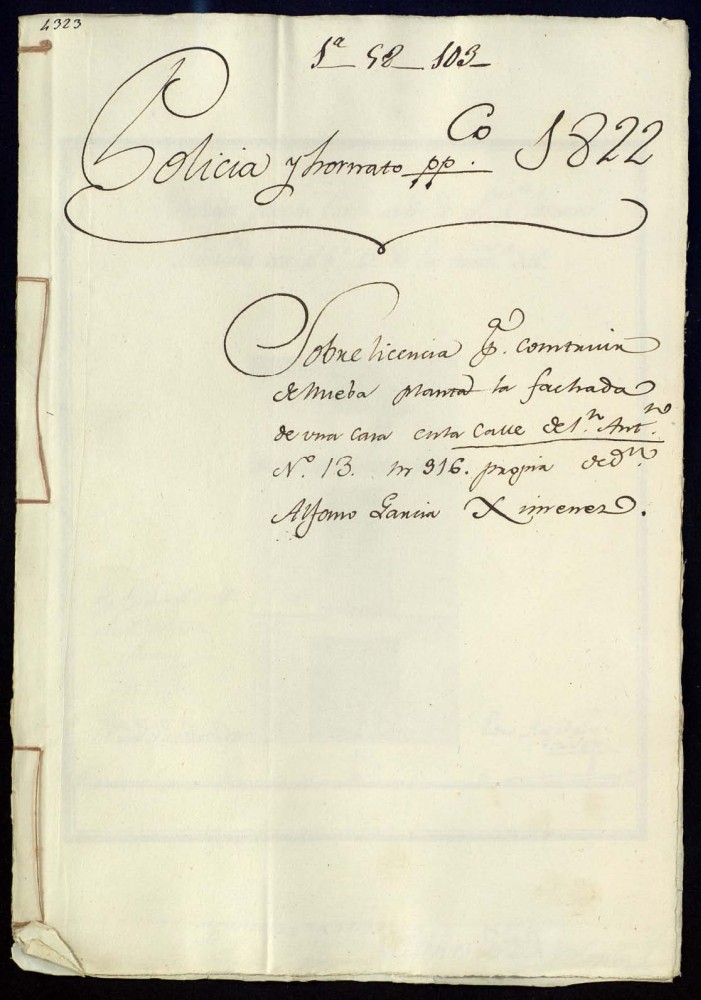 4323
1ª 58 103
Policia y hornato pp.co 1822
Sobre licencia pª. construir
de nueba planta la fachada
de una casa en la Calle de S.n Ant.no
N.º 13. m 316. propia de d.n
Alfonso Garcia Ximenez.